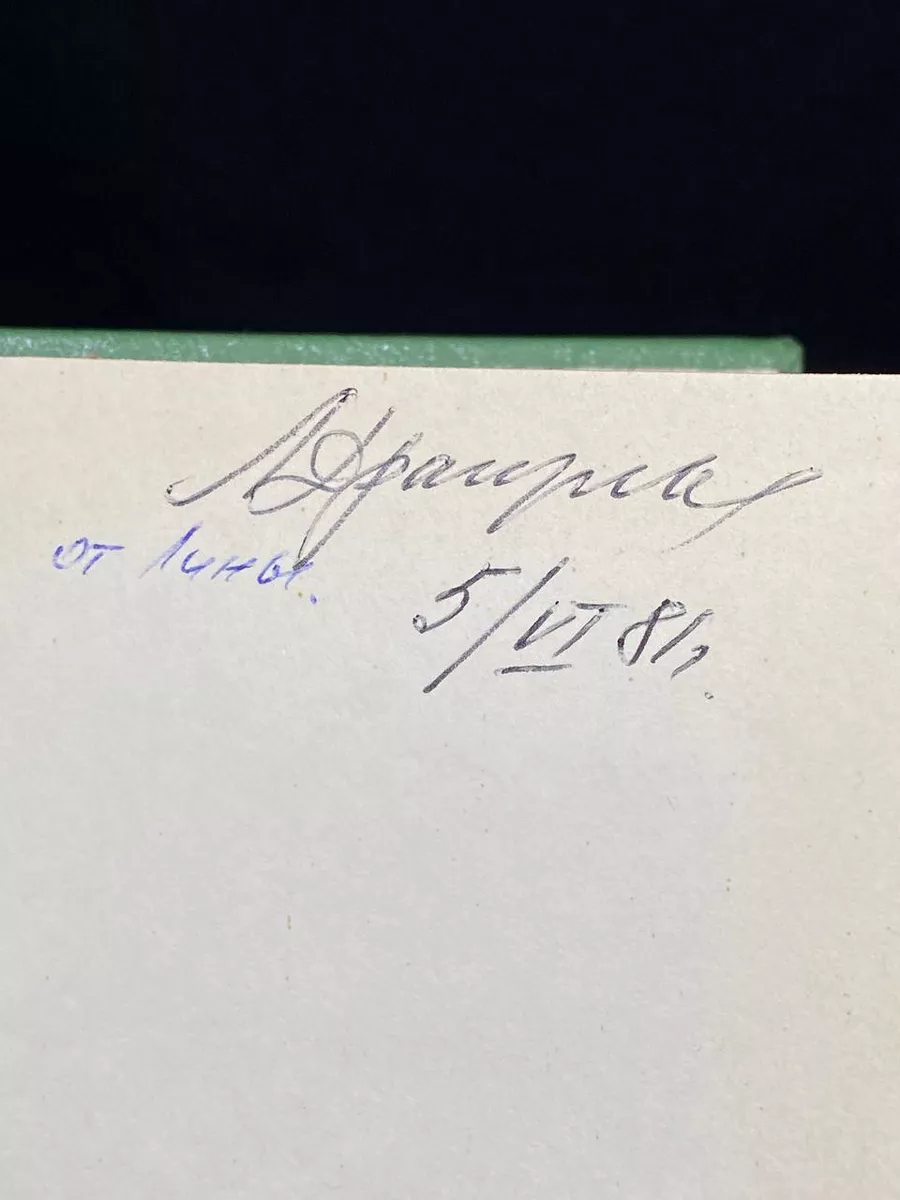 от Лины.
5/VI 81г.